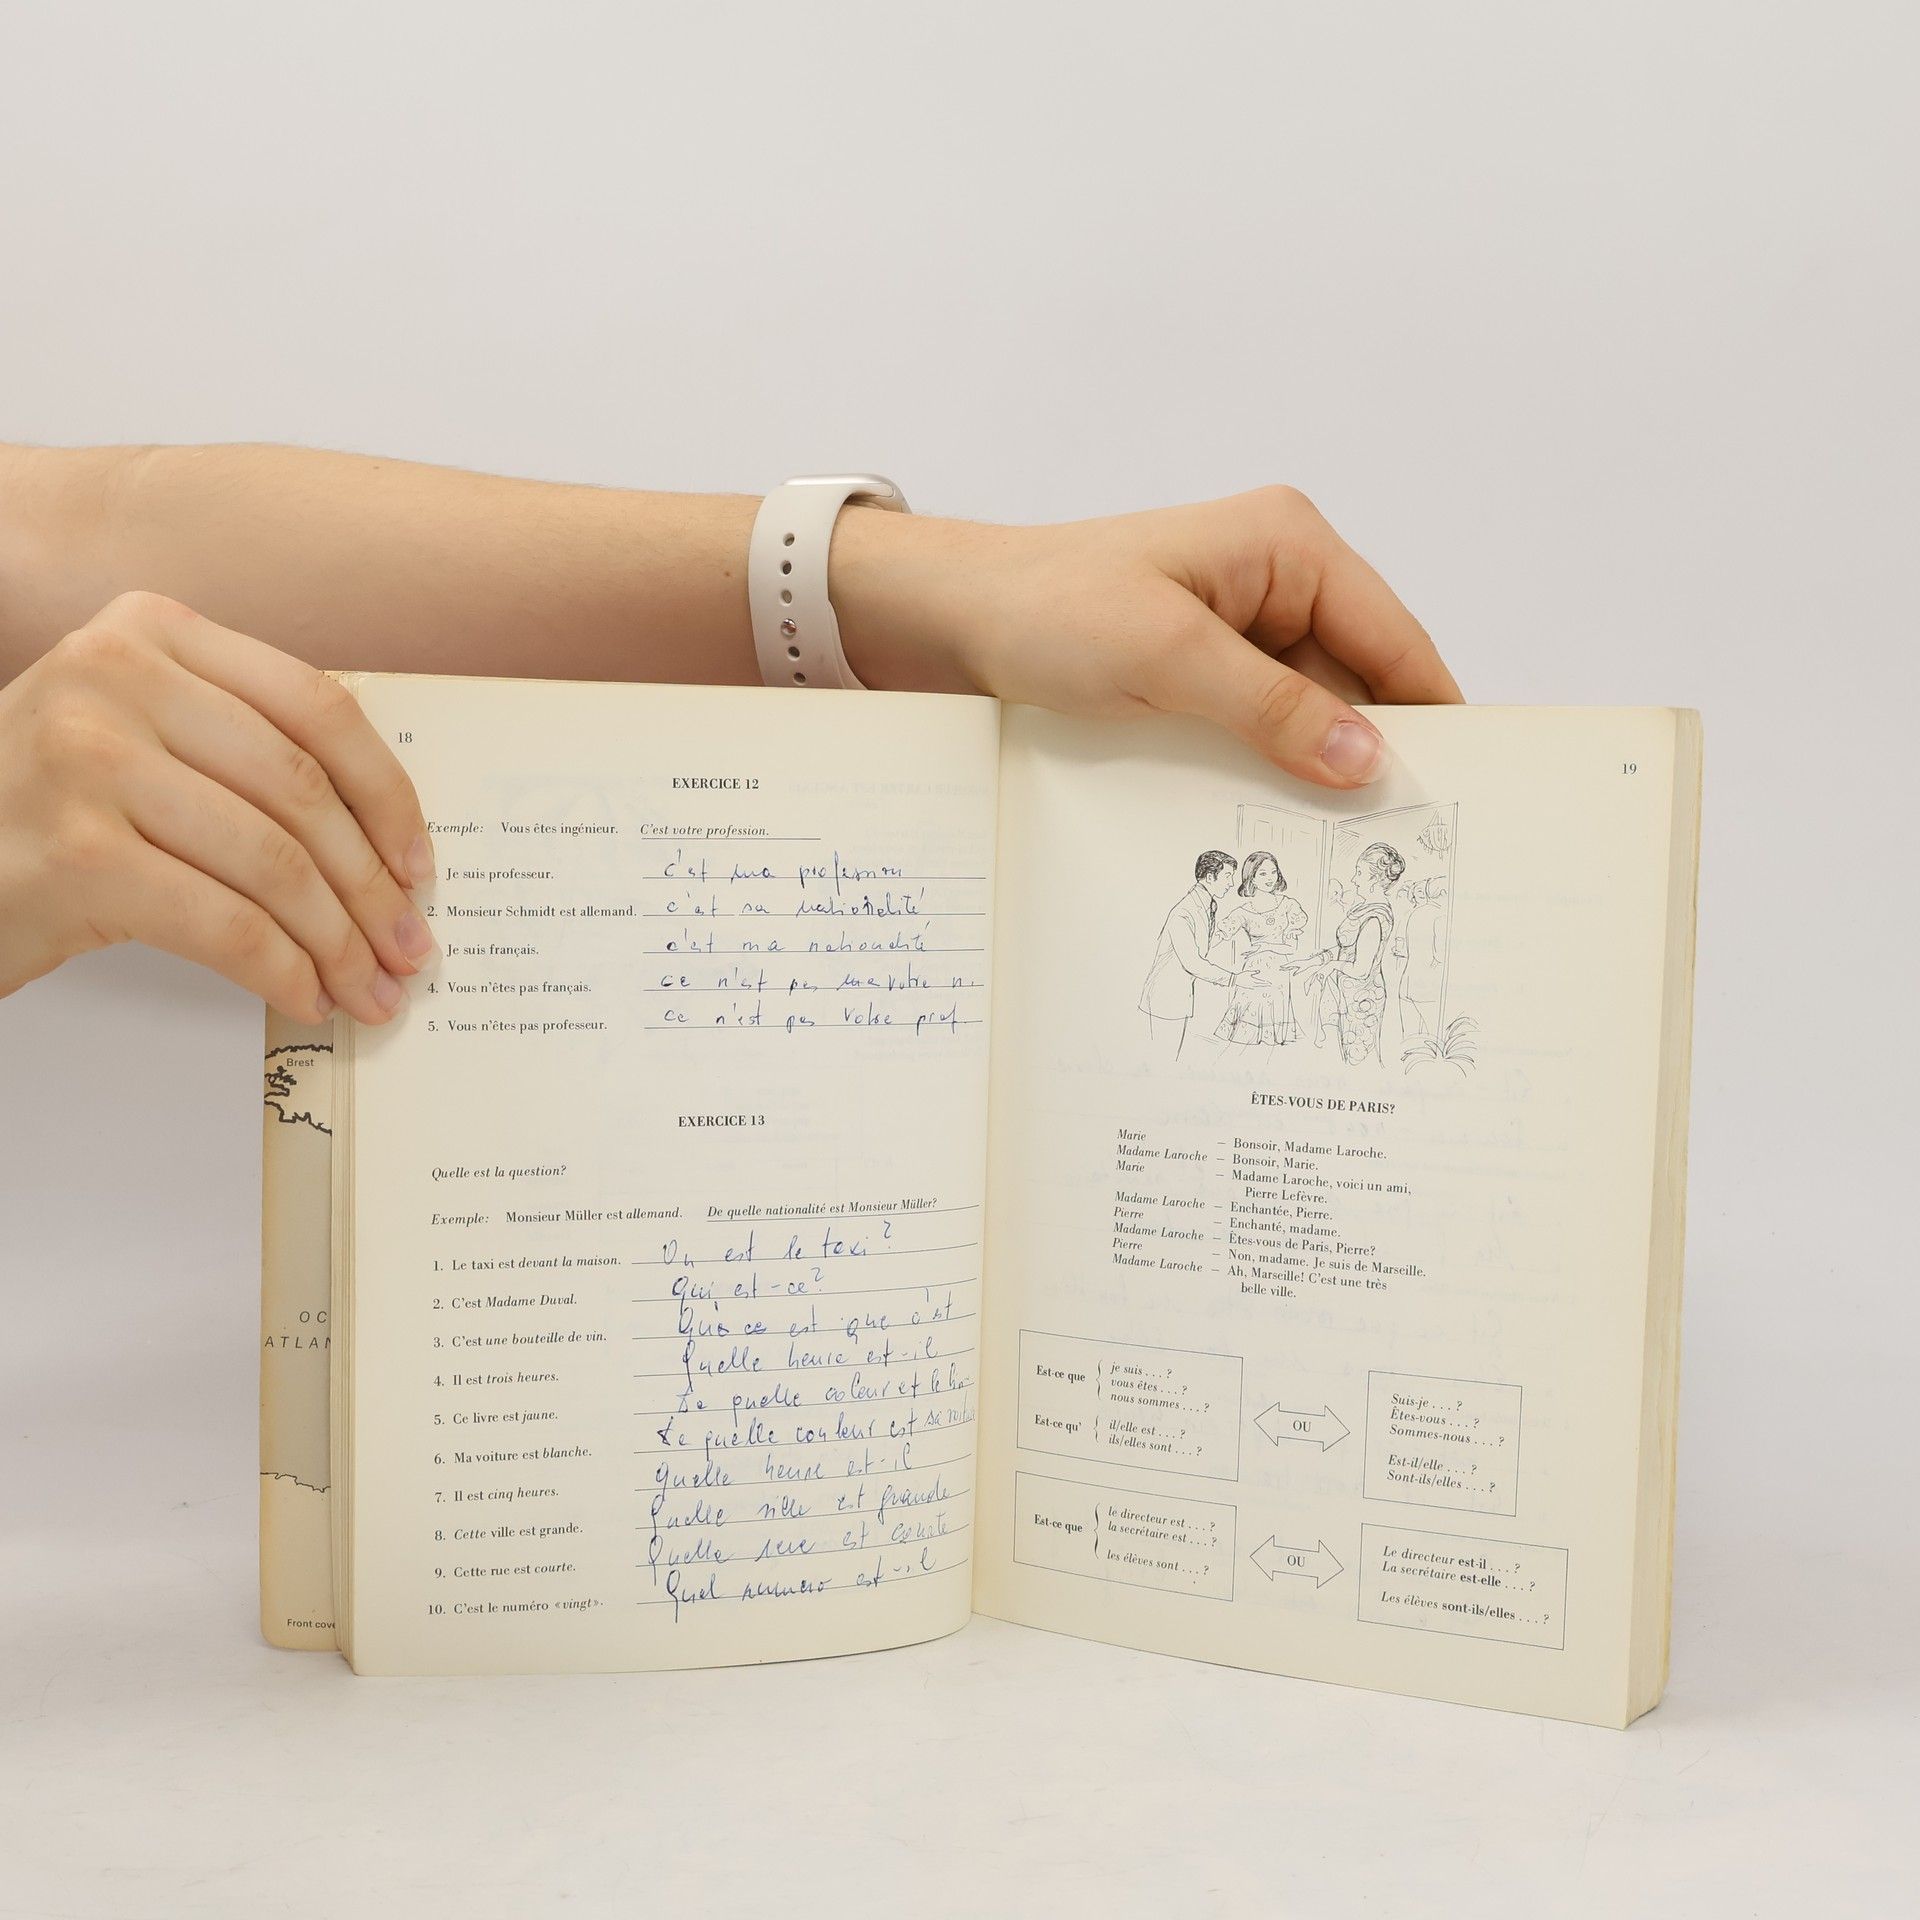 18
EXERCICE 12
Exemple: Vous êtes ingénieur. C'est votre profession.
Je suis professeur. c'est ma profession
2. Monsieur Schmidt est allemand. c'est sa nationalité
Je suis français. c'est ma nationalité
4. Vous n'êtes pas français. ce n'est pas votre n.
5. Vous n'êtes pas professeur. ce n'est pas votre prof.
EXERCICE 13
Quelle est la question?
Exemple: Monsieur Müller est allemand. De quelle nationalité est Monsieur Müller?
1. Le taxi est devant la maison. Ou est le taxi?
2. C'est Madame Duval. Qui est-ce?
3. C'est une bouteille de vin. est que c'est
4. Il est trois heures. Quelle heure est-il
5. Ce livre est jaune. De quelle couleur et le
6. Ma voiture est blanche. De quelle couleur est sa voiture
7. Il est cinq heures. Quelle heure est-il
8. Cette ville est grande. Quelle ville est grande
9. Cette rue est courte. Quelle rue est courte
10. C'est le numéro «vingt». Quel numero est-il
Brest
OC
ATLAN
Front cove
19
ÊTES-VOUS DE PARIS?
Marie – Bonsoir, Madame Laroche.
Madame Laroche – Bonsoir, Marie.
Marie – Madame Laroche, voici un ami,
Pierre Lefèvre.
Madame Laroche – Enchantée, Pierre.
Pierre – Enchanté, madame.
Madame Laroche – Êtes-vous de Paris, Pierre?
Pierre – Non, madame. Je suis de Marseille.
Madame Laroche – Ah, Marseille! C'est une très
belle ville.
Est-ce que
je suis . . . ?
vous êtes . . . ?
nous sommes . . . ?
Est-ce qu'
il/elle est . . . ?
ils/elles sont . . . ?
OU
Suis-je . . . ?
Êtes-vous . . . ?
Sommes-nous . . . ?
Est-il/elle . . . ?
Sont-ils/elles . . . ?
Est-ce que
le directeur est . . . ?
la secrétaire est . . . ?
les élèves sont . . . ?
OU
Le directeur est-il . . . ?
La secrétaire est-elle . . . ?
Les élèves sont-ils/elles . . . ?